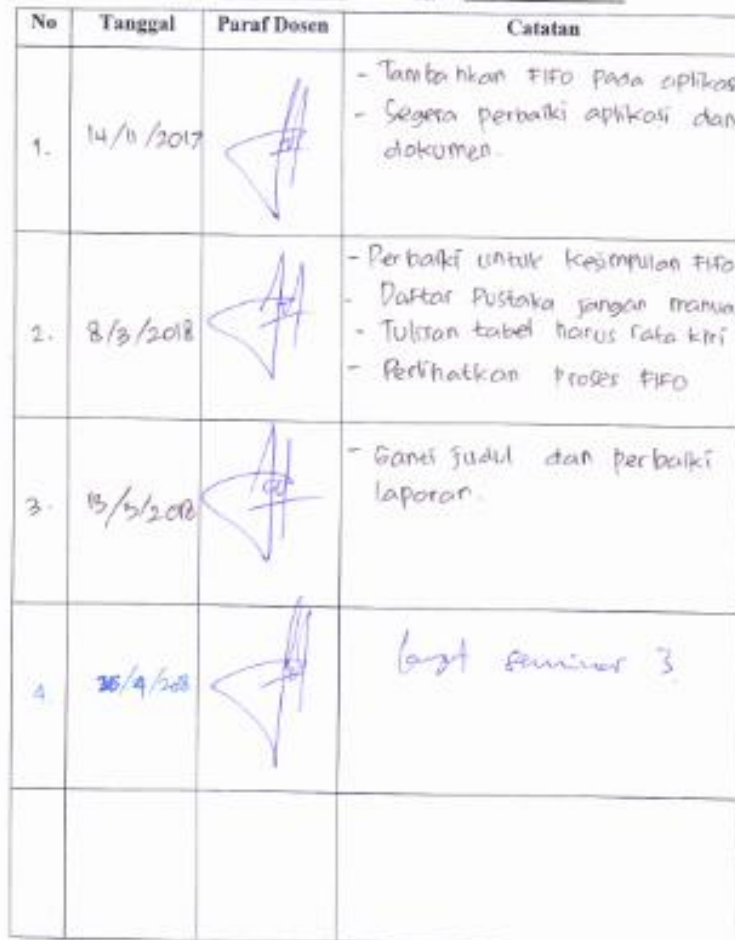 No Tanggal Paraf Dosen Catatan
1. 14/11/2017
- Tambahkan FIFO pada aplikasi
- Segera perbaiki aplikasi dan
dokumen.
2. 8/3/2018
- Perbaiki untuk kesimpulan FIFO
- Daftar Pustaka jangan manua
- Tulisan tabel harus rata kiri
- Perlihatkan Proses FIFO
3. 13/3/2018
- Ganti judul dan perbaiki
laporan.
4 /4/2018
seminar 3